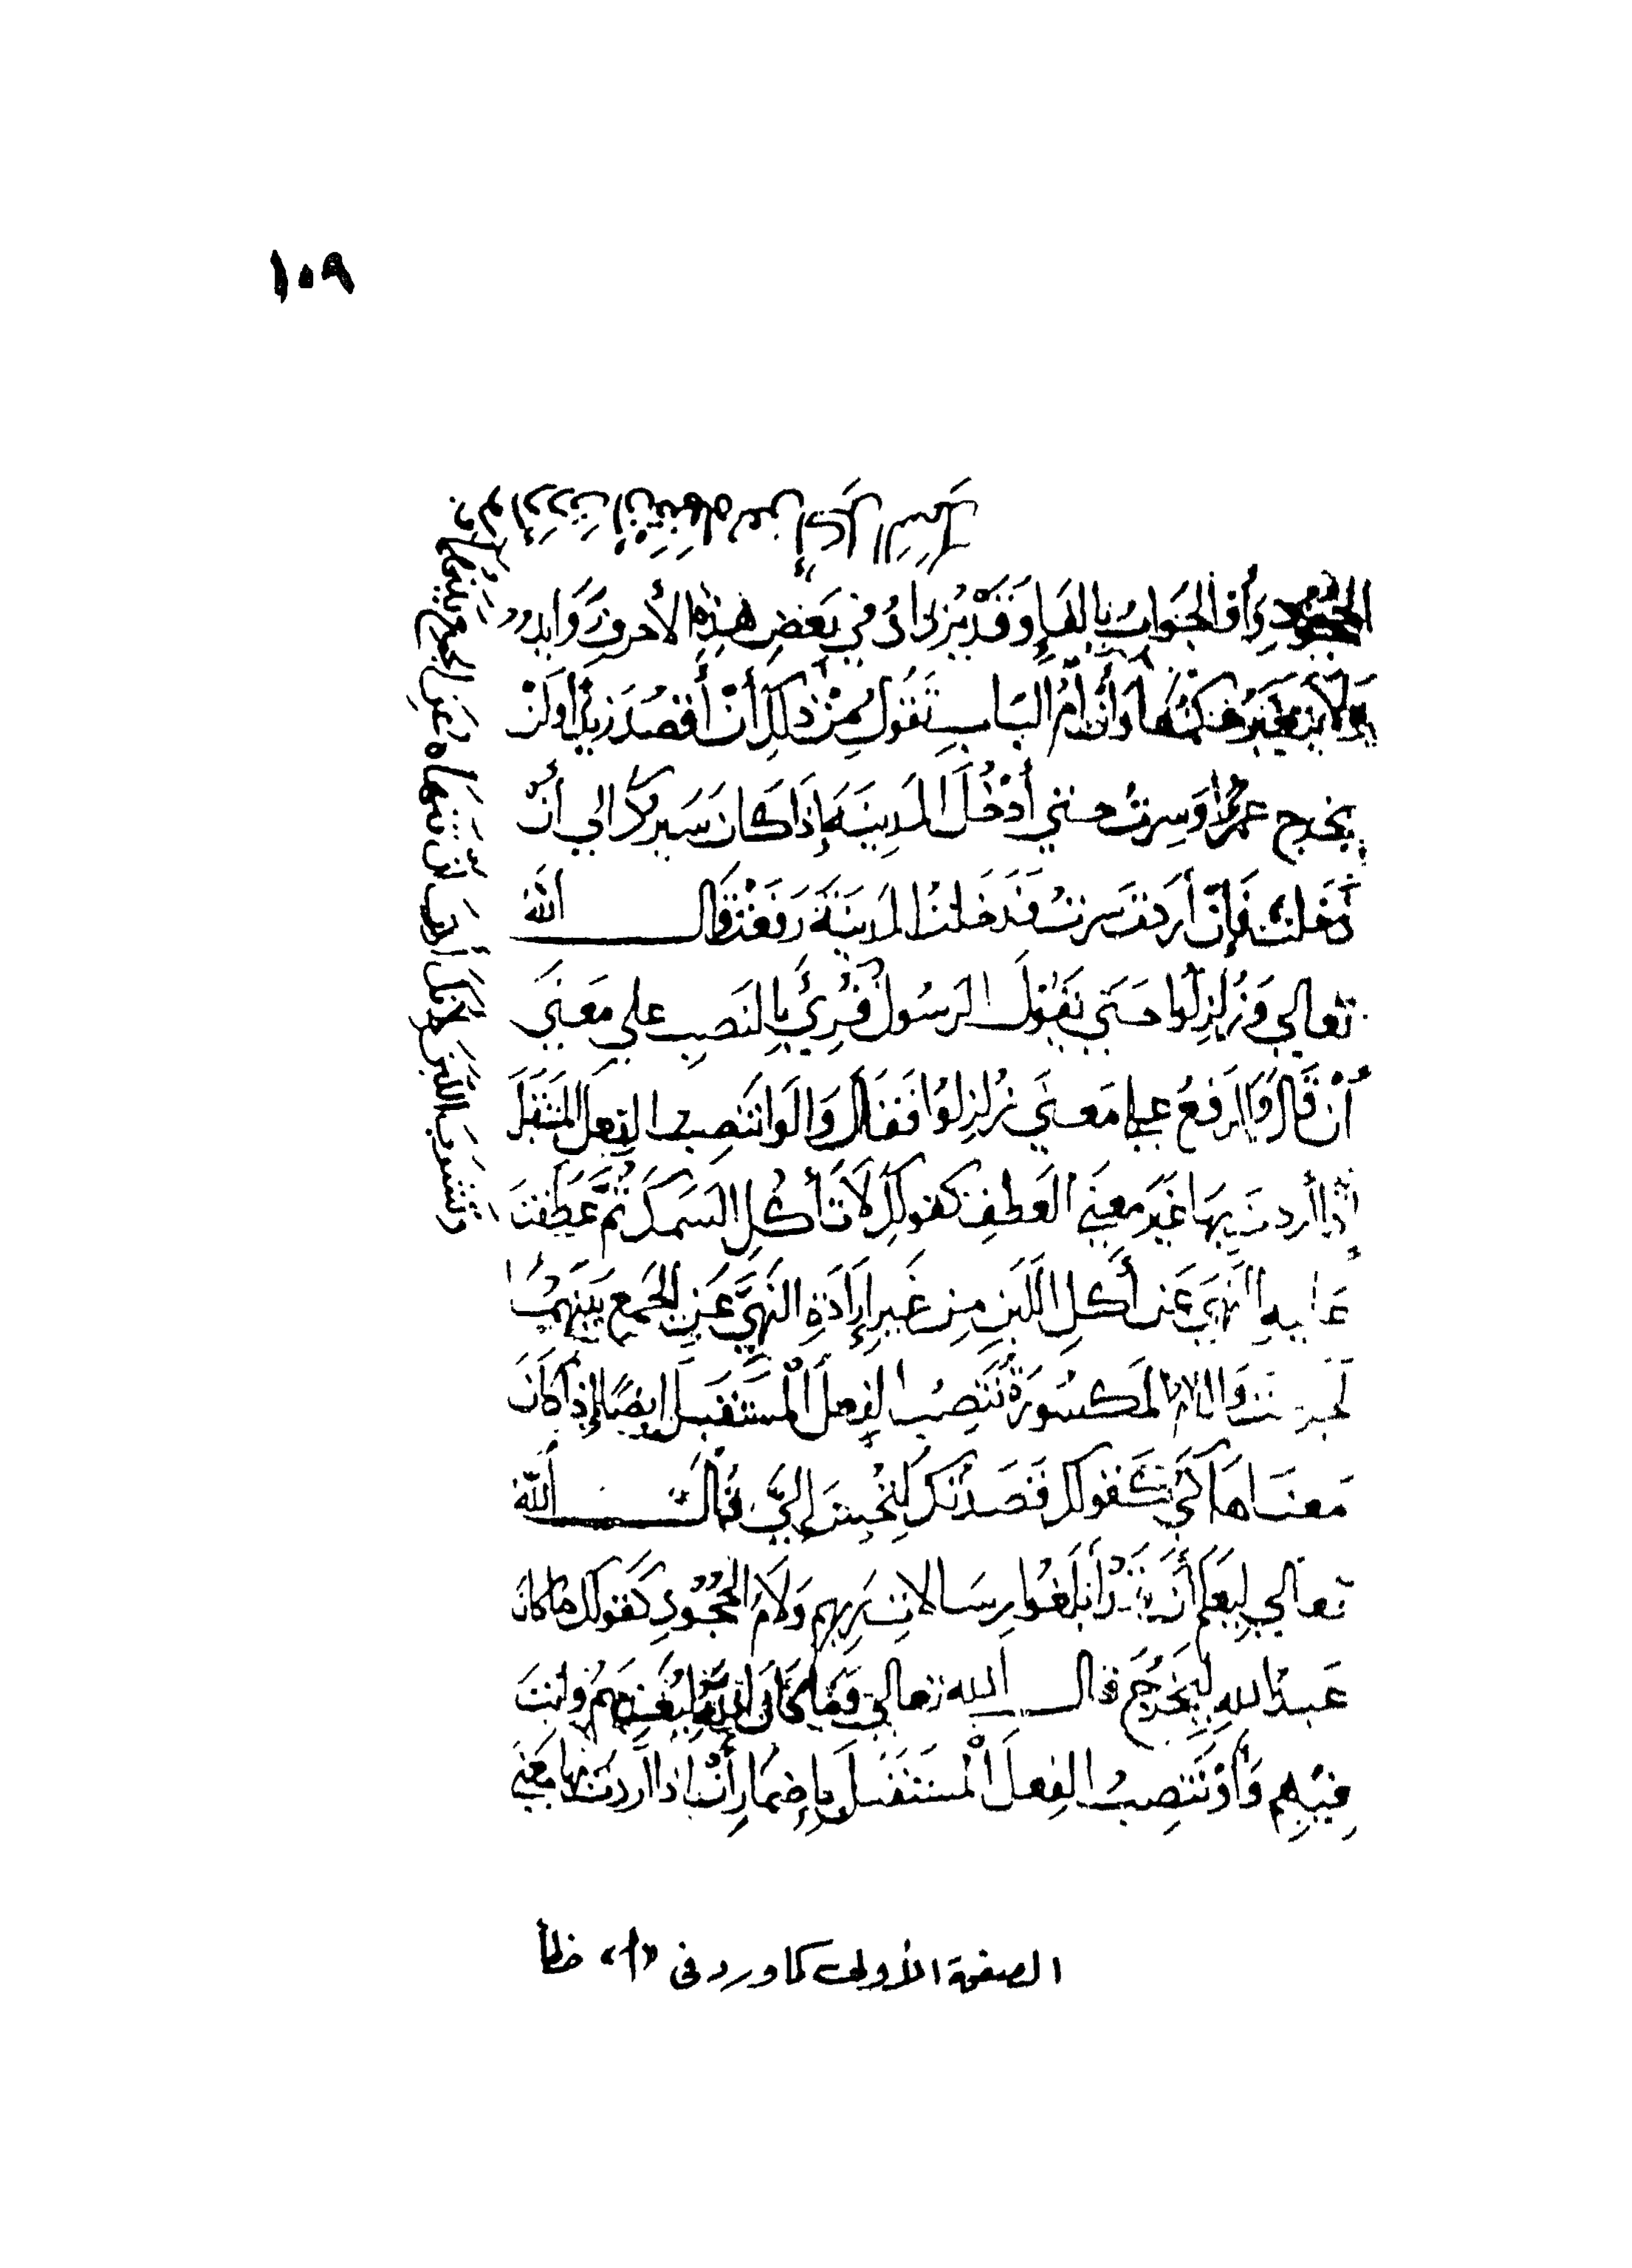 ١٠٩
الجحود وأو الجواب بالفاء وقد يزاد في بعض هذه الأحرف زوايد
ولا يتغير حكمها وأن أم الباب تقول من ذلك أن أقصد زيدًا ولن
يخرج عمرًا وسرت حتي أدخل المدينة إذا كان سيرك إلي أن
دخلت فإن أردت سرت فدخلت المدينة رفعت قال الله
تعالي وَزُلْزِلُوا حَتَي يَقُولَ الرسُولُ قُرِئَ بِالنَصبِ علي مَعنَي
أن قال وَالرفعُ علي مَعني زلزلوا فقال وَالوَاو تنصب الفعل المستقبل
إذا أردت بها غَيرَ معنَي العَطفِ كقولك لَا تَأكُلِ السَمكَ ثُمَّ عَطفتَ
عليه النهيَ عَن أكلِ اللَبَنِ مِن غَيرِ إرَادَةِ النَهيِ عَنِ الجَمعِ بَينَهُمَا
لجزمت وَاللام المكسُورَةُ تَنصِبُ الفِعلَ الْمستَقبلَ ايضًا إذا كانَ
مَعنَاهَا كَي كقولك قَصَدتُكَ لِتُحسِنَ إليَّ قَالَ اللّه
تعَالي لِيَعلَمَ أَنْ قَدْ أَبلَغُوا رِسَالاتِ رَبِهِم وَلَامُ الجُحُودِ كَقَولك ما كان
عَبدُ اللهِ لِيَخرُجَ قال الله تعالي وَمَا كَانَ اللَّهُ لِيُعَذِبَهُم وَأنتَ
فِيهِم وَأَوْ تَنصِبُ الفِعلَ الْمستَقبَلَ بِإضمَارِ أَنْ اذا أردت بها مَعنَي
وتشرب اللبن لأنك أردت أن تنهاه عن الجمع بينهما
ولو أردت أن تنهاه عن أكل السمك
الصفحة الأولى كما ورد فى «أ» خطأ